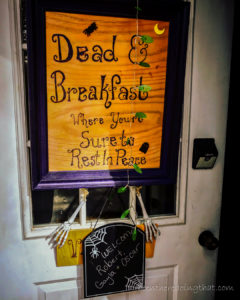 Dead &
Breakfast
Where You're
Sure to
Rest In Peace
Welcome
Robert,